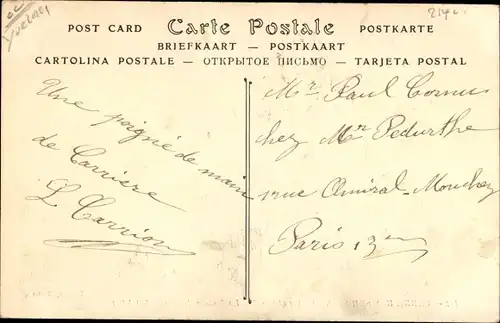 POST CARD Carte Postale POSTKARTE
BRIEFKAART — POSTKAART
CARTOLINA POSTALE — ОТКРЫТОЕ ПИСЬМО — TARJETA POSTAL
Une poigné de main
de Carriere
L. Carrion
Mr. Paul Cornu
chez Mr Pedurthe
1 rue Amiral-Mouchez
Paris 13em